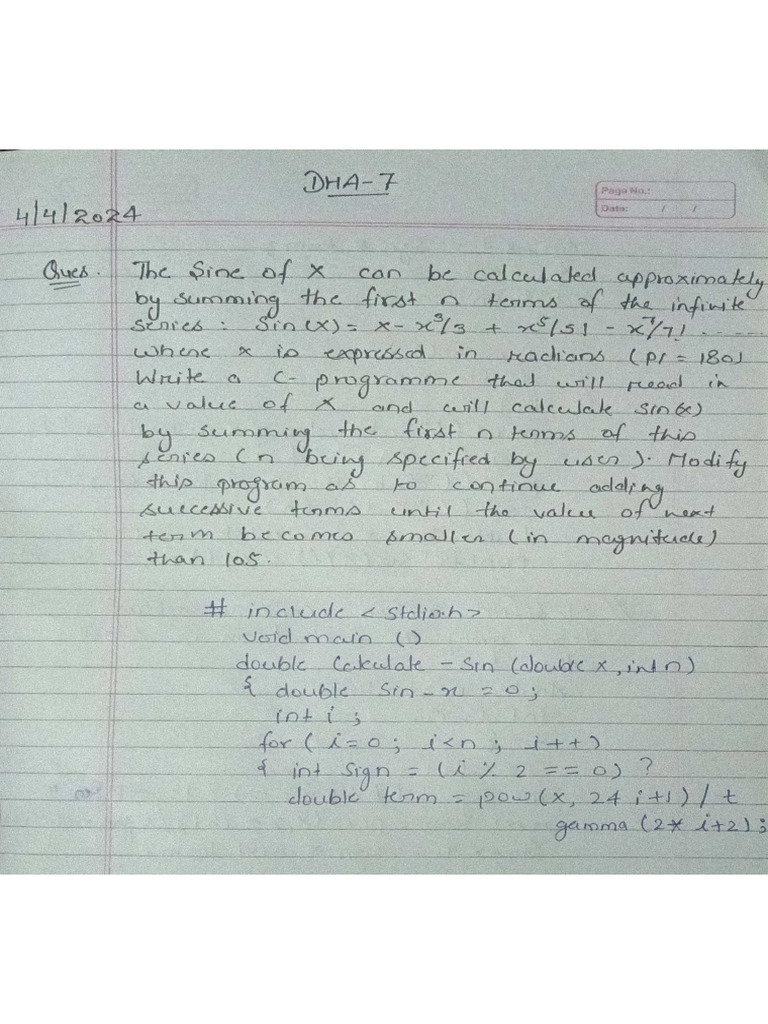 DHA-7
Page No.:
Date: / /
4/4/2024
Ques. The Sine of X can be calculated approximately
by summing the first n terms of the infinite
series: Sin(x) = x - x³/3 + x⁵/5! - x⁷/7! ......
where x is expressed in radians (PI = 180)
Write a C- programme that will read in
a value of X and will calculate sin(x)
by summing the first n terms of this
series (n being specified by user). Modify
this program as to continue adding
successive terms until the value of next
term becomes smaller (in magnitude)
than 105.
# include < stdio.h>
void main ()
double Calculate - Sin (double x, int n)
{ double Sin - x = 0;
int i ;
for ( i = 0 ; i<n ; i++)
{ int Sign = (i % 2 == 0) ?
double term = pow(x, 24 i+1) / t
gamma (2* i+2);